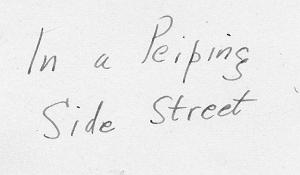 In a Peiping
Side Street